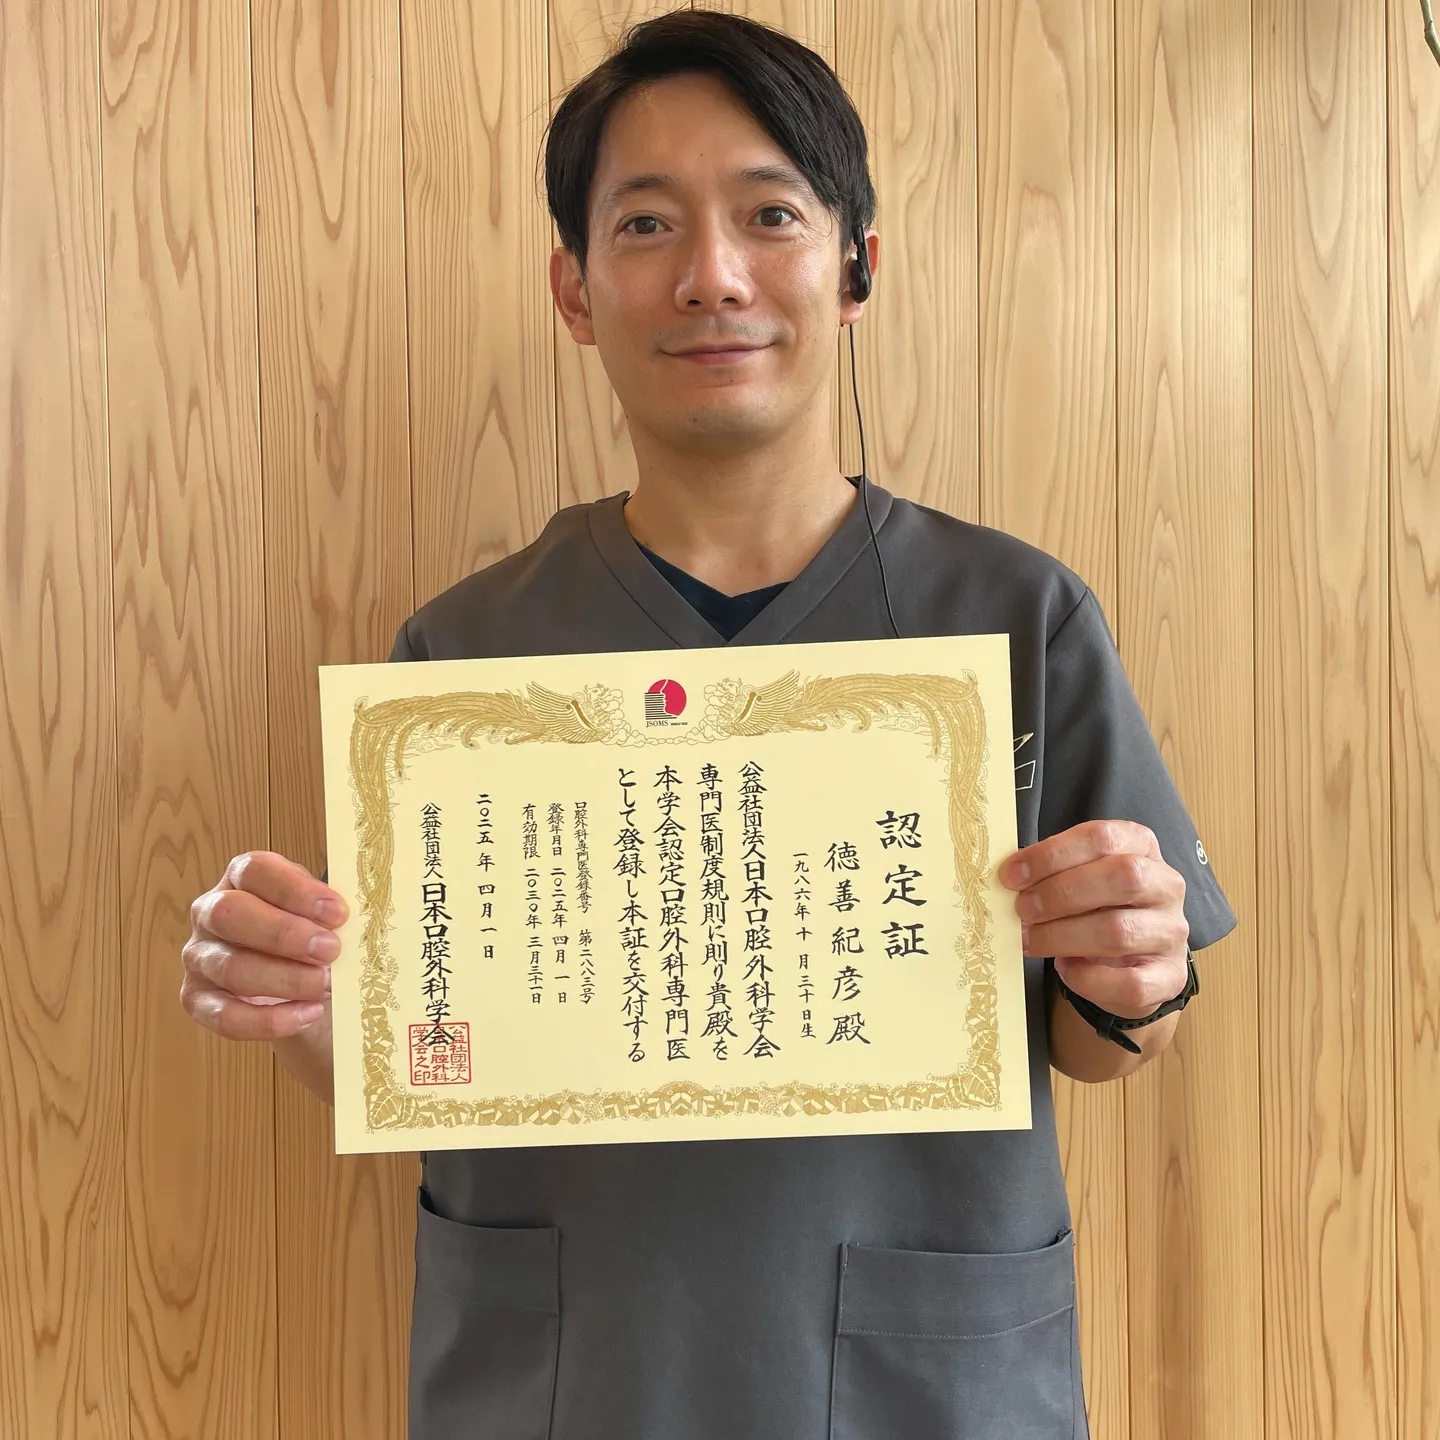 JSOMS
認定証
徳善紀彦殿
一九八六年十月三十日生
公益社団法人日本口腔外科学会
専門医制度規則に則り貴殿を
本学会認定口腔外科専門医
として登録し本証を交付する
口腔外科専門医登録番号 第二八八三号
登録年月日 二〇二五年四月一日
有効期限 二〇三〇年三月三十一日
二〇二五年四月一日
公益社団法人日本口腔外科学会
公益社団法人
日本口腔外科
学会之印